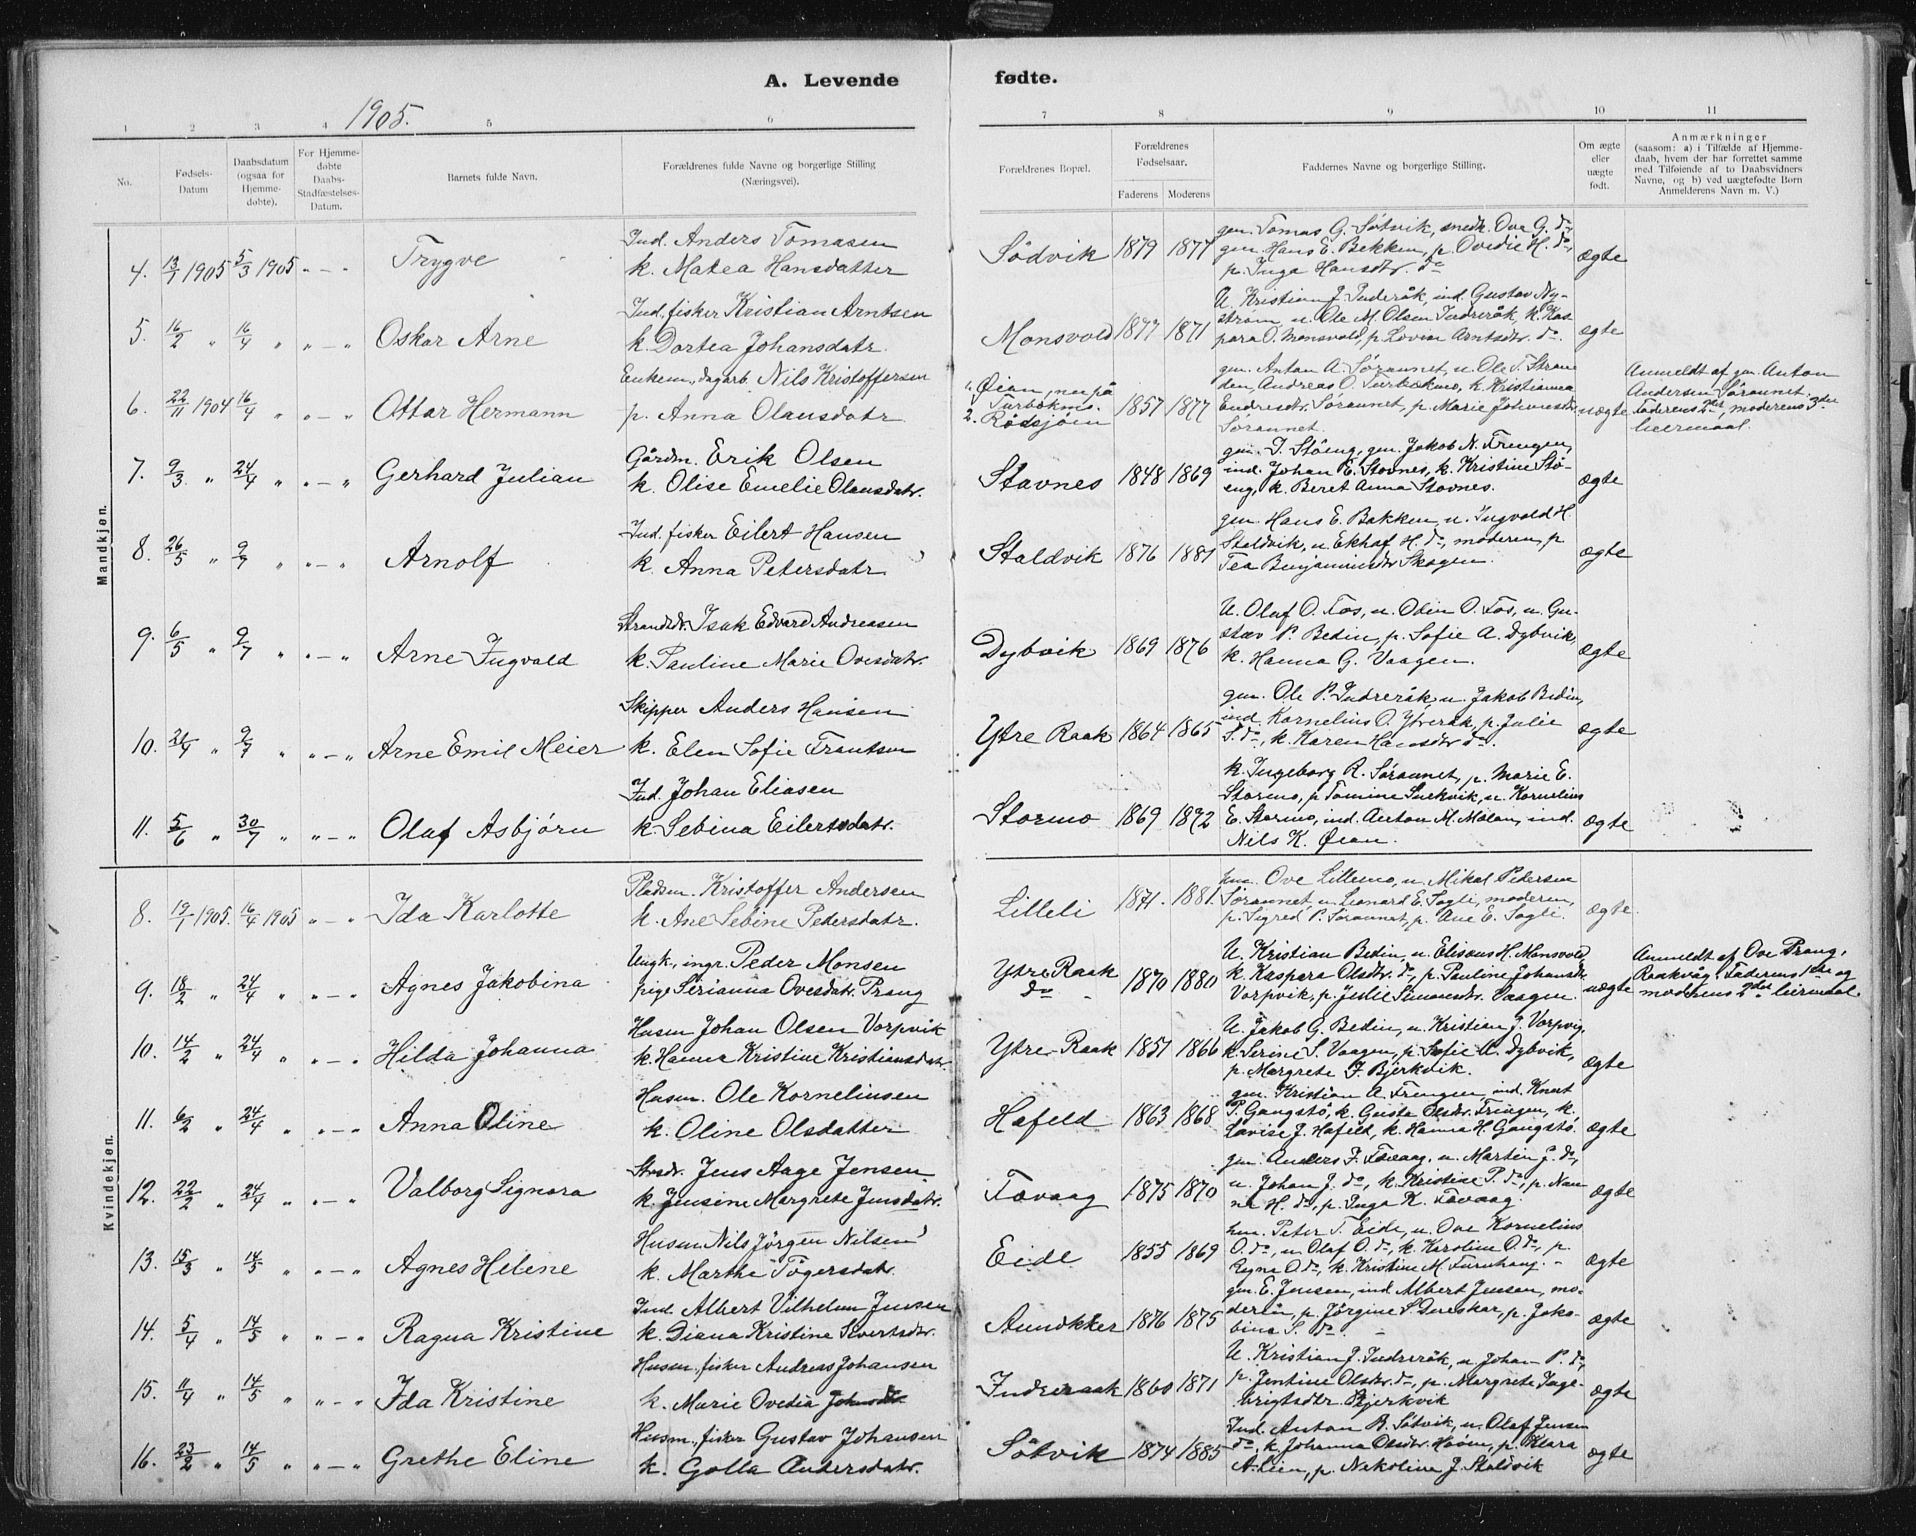 A. Levende fødte.
1905.
1 2 3 4 5 6 7 8 9 10 11
No.
Fødsels-
Datum
Daabsdatum
(ogsaa for
Hjemme-
døbte).
For Hjemme-
døbte
Daabs-
Stadfæstelses-
Datum.
Barnets fulde Navn.
Forældrenes fulde Navne og borgerlige Stilling
(Næringsvei).
Forældrenes Bopæl.
Forældrenes
Fødselsaar.
Faderens Moderens
Faddernes Navne og borgerlige Stilling.
Om ægte
eller
uægte
født.
Anmærkninger
(saasom: a) i Tilfælde af Hjemme-
daab, hvem der har forrettet samme
med Tilføiende af to Daabsvidners
Navne, og b) ved uægtefødte Børn
Anmelderens Navn m. V.)
Mandkjøn.
4. 13/1 1905 5/3 1905 " — " Trygve
Ind. Anders Tomasen
k. Matea Hansdatter
Södvik 1879 1877
gm. Tomas G. Søtvik, snedk. Ove G. do,
gm. Hans E. Bekken, p. Ovedie H. do,
p. Inga Hansdtr. do
ægte
5. 16/2 " 16/4 " " — " Oskar Arne
Ind. fisker Kristian Arntsen
k. Dortea Johansdatr.
Monsvold 1877 1871
U. Kristian J. Inderåk, ind. Gustav Ny-
strøm, u. Ole M. Olsen Inderåk, k. Kas-
para O. Monsvold, p. Lovise Arntsdtr. do.
ægte
6. 22/11 1904 16/4 " " — " Ottar Hermann
Enkem., dagarb. Nils Kristoffersen
p. Anna Olausdatr.
1. Øian, nu på
Turbekmo.
2. Rødsjøen
1857 1877
gm. Anton A. Søraunet, u. Ole T. Stran-
den, Andreas O. Turbekmo, k. Kristianna
Endresdtr. Søraunet, p. Marie Johnesdtr.
Søraunet.
uægte
Anmeldt af gm. Anton
Andersen Søraunet.
Faderens 2det, moderens 3die
leiermaal.
7. 9/3 " 24/4 " " — " Gerhard Julian
Gårdm. Erik Olsen
k. Olise Emelie Olausdatr.
Stavnes 1848 1869
gm. I. Stöeng, gm. Jakob N. Frengen,
ind. Johan E. Stavnes, k. Kristine Stö-
eng, k. Beret Anna Stavnes.
ægte
8. 26/5 " 9/7 " " — " Arnolf
Ind. fisker Eilert Hansen
k. Anna Petersdatr.
Staldvik 1876 1881
gm. Hans E. Bakken, u. Ingvald H.
Staldvik, u. Ekhaf H. do, moderen, p.
Tea Benjaminsdtr. Skagen.
ægte
9. 6/5 " 9/7 " " — " Arne Ingvald
Strandsdr. Isak Edvard Andreasen
k. Pauline Marie Ovesdatr.
Dybvik 1869 1876
U. Olaf O. Fos, u. Odin O. Fos, u. Gu-
stav P. Bedin, p. Sofie A. Dybvik,
k. Hanna G. Vaagen.
ægte
10. 21/4 " 9/7 " " — " Arne Emil Meier
Skipper Anders Hansen
k. Elen Sofie Frantsen
Ytre Raak 1864 1865
gm. Ole P. Indreråk, u. Jakob Bedin,
ind. Kornelius O. Ytreråk, p. Julie
S. do, k. Karen Hansdtr. do.
ægte
11. 5/6 " 30/7 " " — " Olaf Asbjørn
Ind. Johan Eliasen
k. Sebina Eilertsdatr.
Stormo 1869 1872
k. Ingeborg R. Søraunet, p. Marie E.
Stormo, p. Tomine Snekvik, u. Kornelius
E. Stormo, ind. Anton M. Målan, ind.
Nils K. Øian.
ægte
Kvindekjøn.
8. 19/1 1905. 16/4 1905 " — " Ida Karlotte
Pladsm. Kristoffer Andersen
k. Ane Sebine Pedersdatr.
Lilleli 1871. 1881.
hm. Ove Lillemo, u. Mikal Pedersen
Søraunet, u. Leonard E. Sagli, moderen,
p. Sigred P. Søraunet, p. Ane E. Sagli.
ægte.
9. 18/2 " 24/4 " " — " Agnes Jakobina
Ungk., ingr. Peder Monsen
pige Serianna Ovesdatr. Prang
Ytre Raak
do
1870 1880
U. Kristian Bedin, u. Eliseus H. Monsvold,
k. Kaspara Olsdtr. do, p. Pauline Johansdtr.
Vorpvik, p. Jeslie Simonsdtr. Vaagen.
uægte
Anmeldt af Ove Prang,
Raakvåg. Faderens 1ste og
moderens 2det leiermaal.
10. 14/2 " 24/4 " " — " Hilda Johanna
Husm. Johan Olsen Vorpvik
k. Hanna Kristine Kristiansdatr.
Ytre Raak 1851 1866
U. Jakob G. Bedin, u. Kristian J. Vorpvig,
k. Serine S. Vaagen, p. Sofie A. Dybvik,
p. Margrete J. Bjerkvik.
ægte
11. 6/2 " 24/4 " " — " Anna Oline
Husm. Ole Korneliussen
k. Oline Olsdatter
Hafeld 1863 1868
gm. Kristian A. Frengen, ind. Knut
P. Gangstö, k. Gusta Olsdtr. Frengen, k.
Lovise J. Hafeld, k. Hanna H. Gangstö.
ægte
12. 22/2 " 24/4 " " — " Valborg Signora
Strsdr. Jens Aage Jensen
k. Jensine Margrete Jensdatr.
Fævaag 1875 1870
gm. Anders F. Fævaag, u. Martin J. do,
u. Johan J. do, k. Kristine P. do, p. Nan-
na H. do, p. Inga K. Fævaag
ægte
13. 15/3 " 14/5 " " — " Agnes Helene
Husm. Nils Jörgen Nilsen
k. Marthe Tögersdatr.
Eide 1855 1869
hm. Peter T. Eide, u. Ove Kornelius
O. do, u. Olaf O. do, k. Karoline O. do, p.
Regna O. do, k. Kristine M. Furuhaug.
ægte
14. 5/4 " 14/5 " " — " Ragna Kristine
Ind. Albert Vilhelm Jensen
k. Diana Kristine Sivertsdtr.
Aunökker 1876 1875
gm. E. Jensen, ind. Albert Jensen, mo-
deren, p. Jörgine S. Dueskar, p. Jako-
bina S. do
ægte
15. 11/4 " 14/5 " " — " Ida Kristine
Husm., fisker Andreas Johansen
k. Marie Ovedia Johansdtr
Indreraak 1860 1871
U. Kristian J. Indreråk, u. Johan P. do,
p. Jentine Olsdtr. do, p. Margrete Inge-
brigtsdtr. Bjerkvik
ægte
16. 23/2 " 14/5 " " — " Grethe Eline
Husm., fisker Gustav Johansen
k. Golla Andersdatr.
Söt­vik 1874 1885
Ind. Anton B. Søtvik, u. Olaf Jensen
do, k. Johanna Olsdtr. Hoöen, p. Klara
A. Lien, p. Nakoline J. Staldvik
ægte